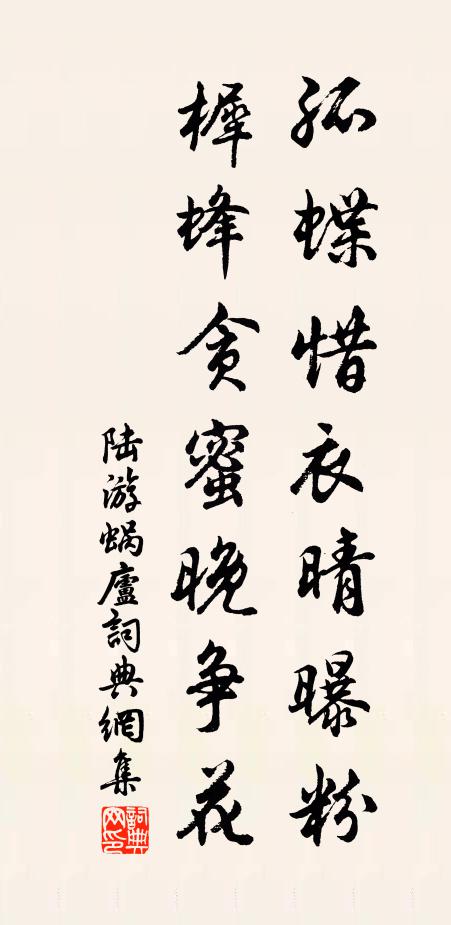 孤蝶惜衣晴曝粉
樨蜂贪蜜晚争花
陆游蜗廬詞典網集
詞典网印